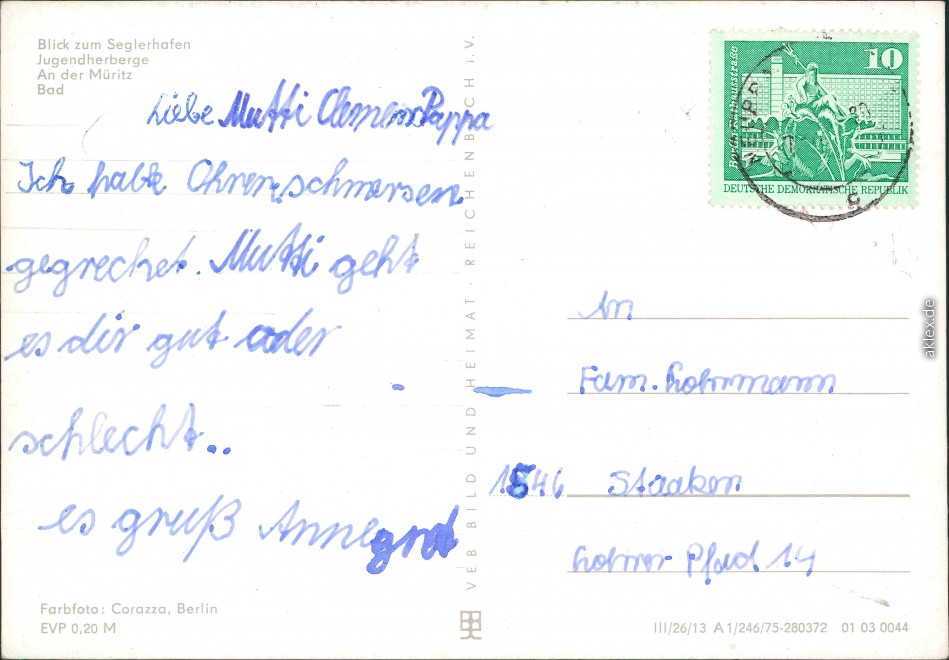 Blick zum Seglerhafen
Jugendherberge
An der Müritz
Bad
Liebe Mutti Clemens Pappa
Ich habe Ohrenschmersen
gegrechet. Mutti geht
es dir gut oder
schlecht..
es gruß Annegret
Farbfoto: Corazza, Berlin
EVP 0,20 M
VEB BILD UND HEIMAT · REICHENBACH i.V.
10
Berlin, Rathausstraße
DEUTSCHE DEMOKRATISCHE REPUBLIK
An
Fam. Lohrmann
1546 Staaken
Pfad 14
III/26/13 A 1/246/75-280372 01 03 0044
aklex.de